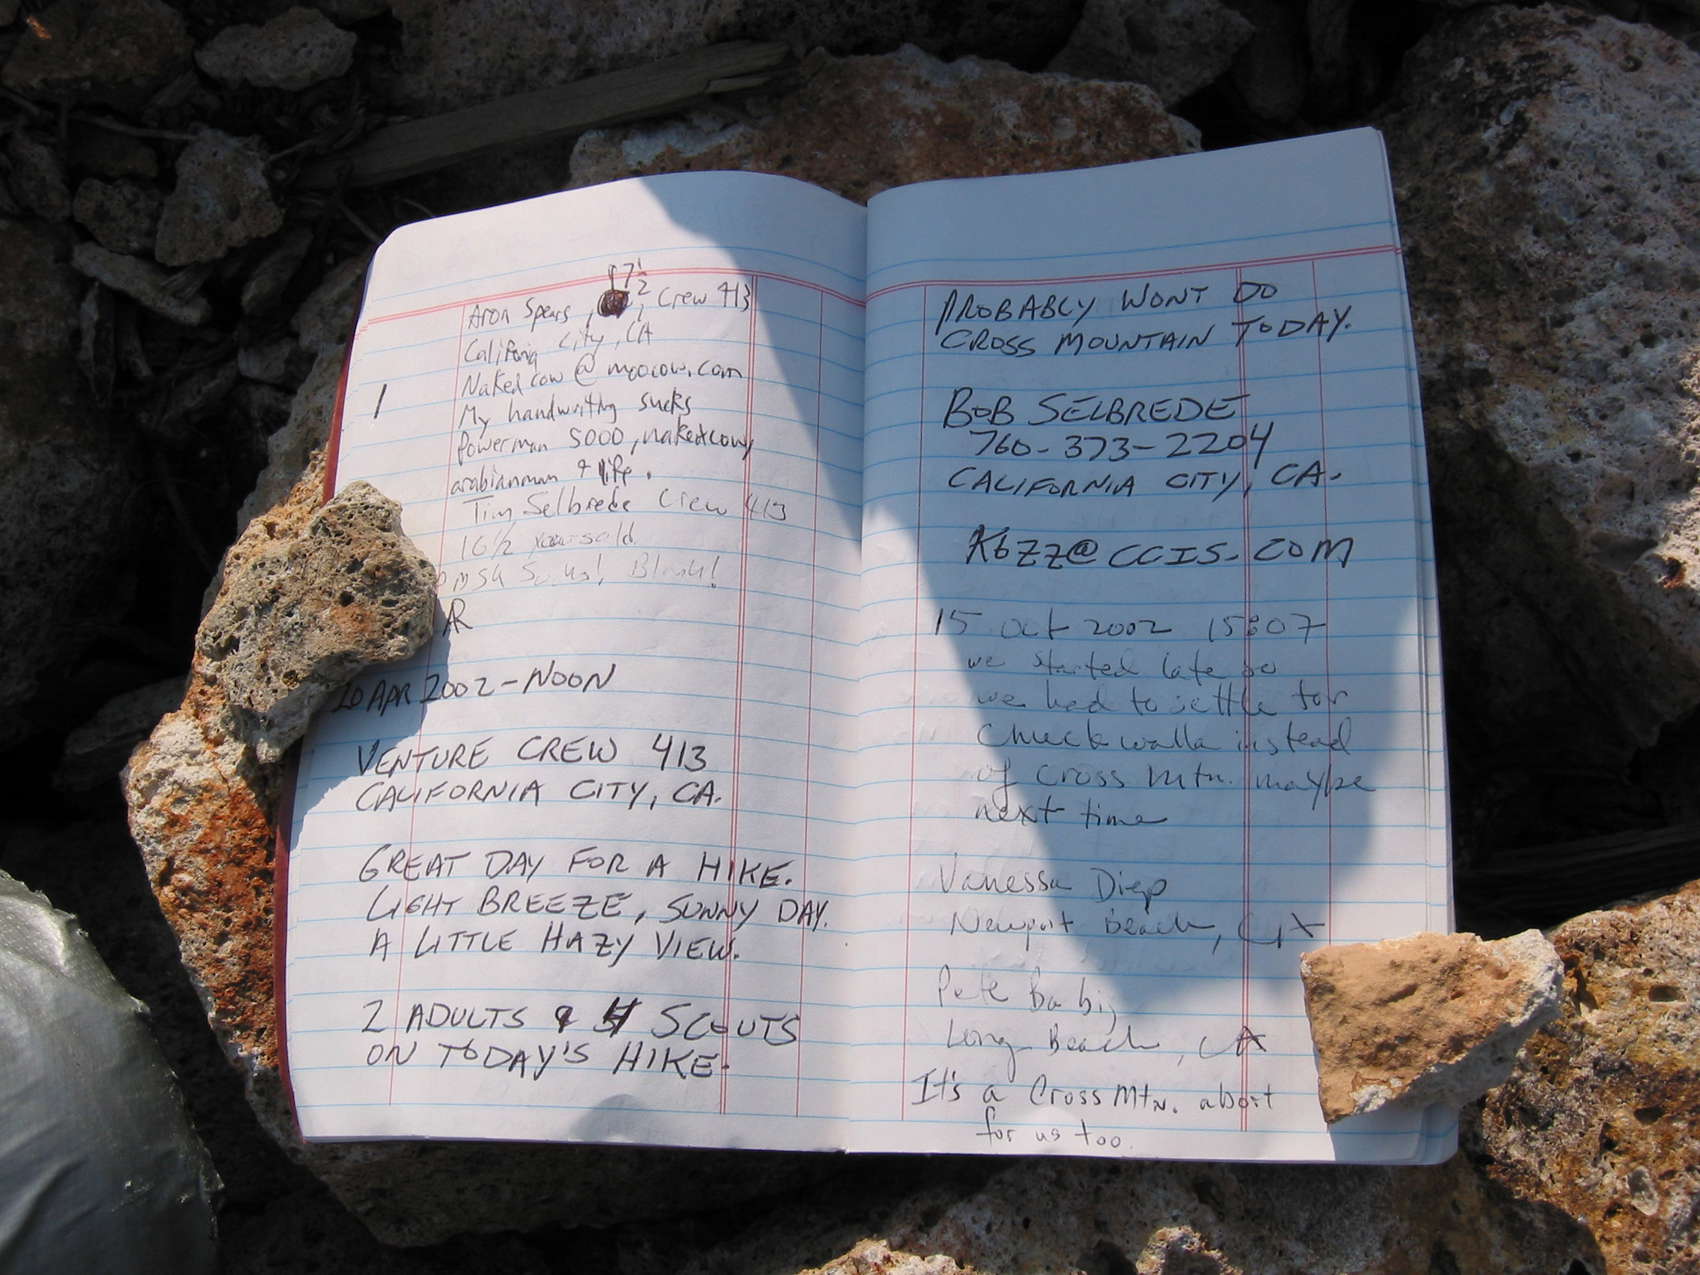 17½
Aron Spears, , Crew 413
California City, CA
Nakedcow@moocow.com
1
My handwriting sucks
Powerman 5000, nakedcow,
arabianman 4 life.
Tim Selbrede Crew 413
16½ years old
AR
20 APR 2002 - NOON
VENTURE CREW 413
CALIFORNIA CITY, CA.
GREAT DAY FOR A HIKE.
LIGHT BREEZE, SUNNY DAY.
A LITTLE HAZY VIEW.
2 ADULTS & SCOUTS
ON TODAY'S HIKE.
PROBABLY WONT DO
CROSS MOUNTAIN TODAY.
BOB SELBREDE
760-373-2204
CALIFORNIA CITY, CA.
K6ZZ@CCIS.COM
15 Oct 2002 15:07
we started late so
we had to settle for
Chuckwalla instead
of Cross Mtn. maybe
next time
Vanessa Diep
Newport Beach, CA
Pete
Long Beach, CA
It's a Cross Mtn. abort
for us too.